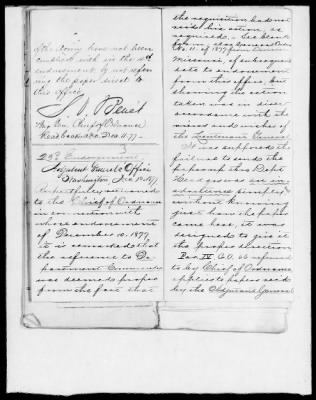 of the Army have not been
complied with in the 2d
endorsement by not refer
ring the paper direct to
this office.
S. V. Benét
Brig. Gen. Chief of Ordnance
Ord. Office Dec. 11. 77.
3
23d Endorsement
Adjutant General's Office
Washington Dec. 12. 1877
Respectfully returned
to the Chief of Ordnance
in connection with
whose endorsement
of December 10. 1877
it is remarked that
the reference to De-
partment Commander
was deemed proper
from the fact that
the requisition had not
had his action, as
required.
of 1877 from
Missouri, of subsequent
date to endorsement
from this office but
showing the action
taken was in
accordance with the
views and wishes of
the Lieutenant General.
It was supposed the
failure to send the
paper up this Dept
Head was an in-
advertence simply &
without knowing
just how the paper
came here, it was
designed to give it
the proper direction
Par. IV G.O. 66 referred
to by Chief of Ordnance
applies to papers sent
by the Adjutant General